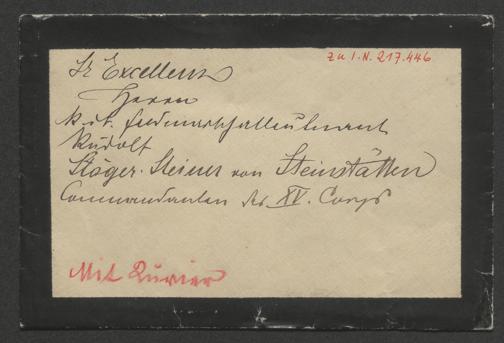 zu I.N. 217.446
Sr Excellenz
Herrn
k. u. k. Feldmarschalleutnant
Rudolf
Stöger-Steiner von Steinstätten
Commandanten des XV. Corps
Mit Kurier